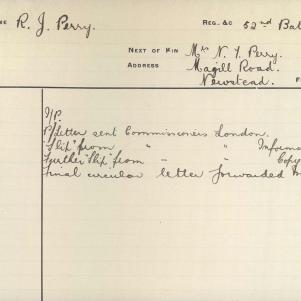 ME R. J. Perry. REG. &C 52nd Bat
NEXT OF KIN Mrs N. Y. Perry.
ADDRESS Magill Road.
Newstead.
I/P.
P/letter sent Commissioners London.
"Slip" from " " Informa
Further "Slip" from " " Copy
Final circular letter forwarded